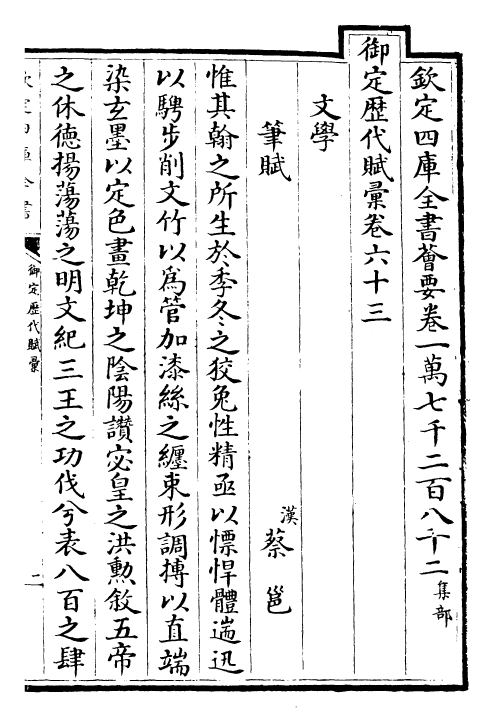 欽定四庫全書薈要卷一萬七千二百八十二 集部
御定歴代賦彙卷六十三
文學
筆賦 漢 蔡邕
惟其翰之所生於季冬之狡兔性精亟以慓悍體遄迅
以騁步削文竹以為管加漆絲之纏束形調摶以直端
染玄墨以定色畫乾坤之陰陽讚宓皇之洪勲敘五帝
之休德揚蕩蕩之明文紀三王之功伐兮表八百之肆
欽定四庫全書
御定歴代賦彙
二